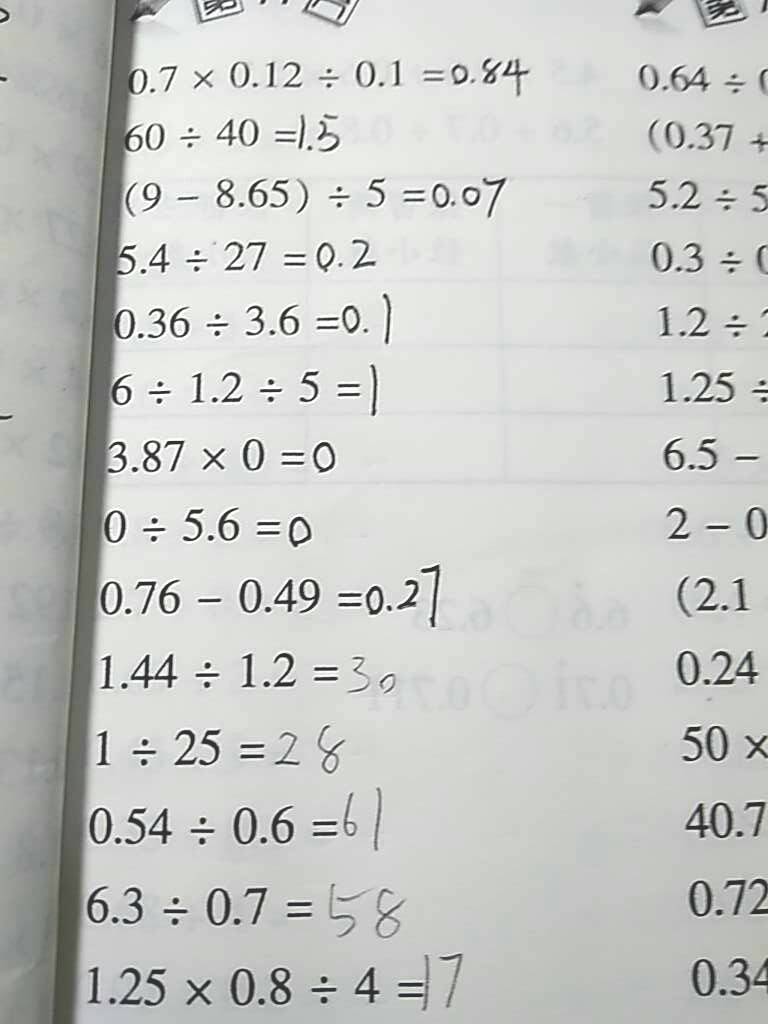 0.7 × 0.12 ÷ 0.1 =0.84
60 ÷ 40 =1.5
(9 − 8.65) ÷ 5 =0.07
5.4 ÷ 27 =0.2
0.36 ÷ 3.6 =0.1
6 ÷ 1.2 ÷ 5 =1
3.87 × 0 =0
0 ÷ 5.6 =0
0.76 − 0.49 =0.27
1.44 ÷ 1.2 =30
1 ÷ 25 =28
0.54 ÷ 0.6 =61
6.3 ÷ 0.7 =58
1.25 × 0.8 ÷ 4 =17
0.64 ÷
(0.37 +
5.2 ÷ 5
0.3 ÷ 0
1.2 ÷
1.25 ÷
6.5 −
2 − 0
(2.1
0.24
50 ×
40.7
0.72
0.34